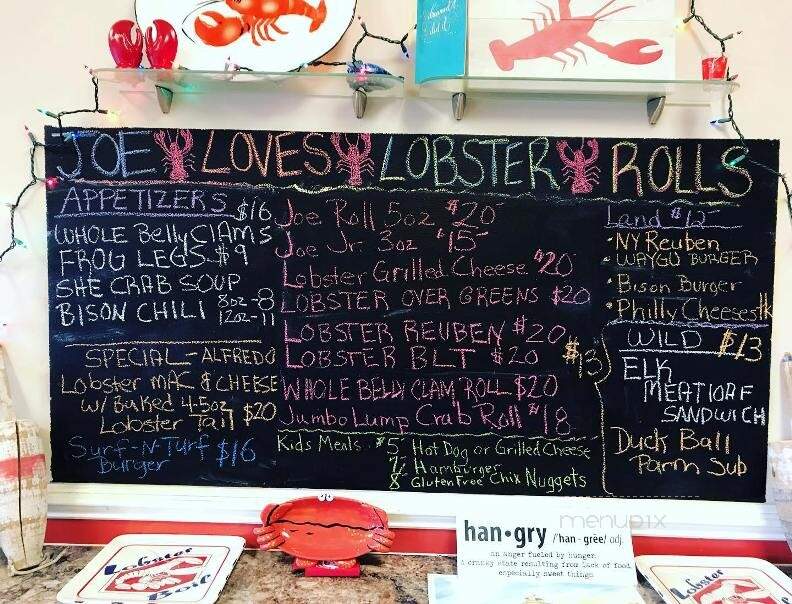 JOE LOVES LOBSTER ROLLS
APPETIZERS
$16
WHOLE Belly CIAMS
FROG LEGS $9
SHE CRAB SOUP
BISON CHILI 8oz-8
12oz-11
SPECIAL-ALFREDO
Lobster MAC & CHEESE
w/ Baked 4-5oz
Lobster Tail $20
Surf-N-Turf $16
Burger
Joe Roll 5oz $20
Joe Jr. 3oz $15
Lobster Grilled Cheese $20
LOBSTER OVER GREENS $20
LOBSTER REUBEN $20
LOBSTER BLT $20
WHOLE BELLY CLAM ROLL $20
Jumbo Lump Crab Roll $18
Kids Meals $5 Hot Dog or Grilled Cheese
7 Hamburger
8 Gluten Free Chix Nuggets
Land $12
·NY Reuben
·WAYGU BURGER
·Bison Burger
·Philly Cheesestk
WILD $13
$13
ELK
MEATlOAF
SANDWICH
Duck Ball
Parm Sub
han•gry /'han - grēe/ adj.
an anger fueled by hunger.
a cranky state resulting from lack of food
especially sweet things
menupix
Lobster
Boil
Lobster